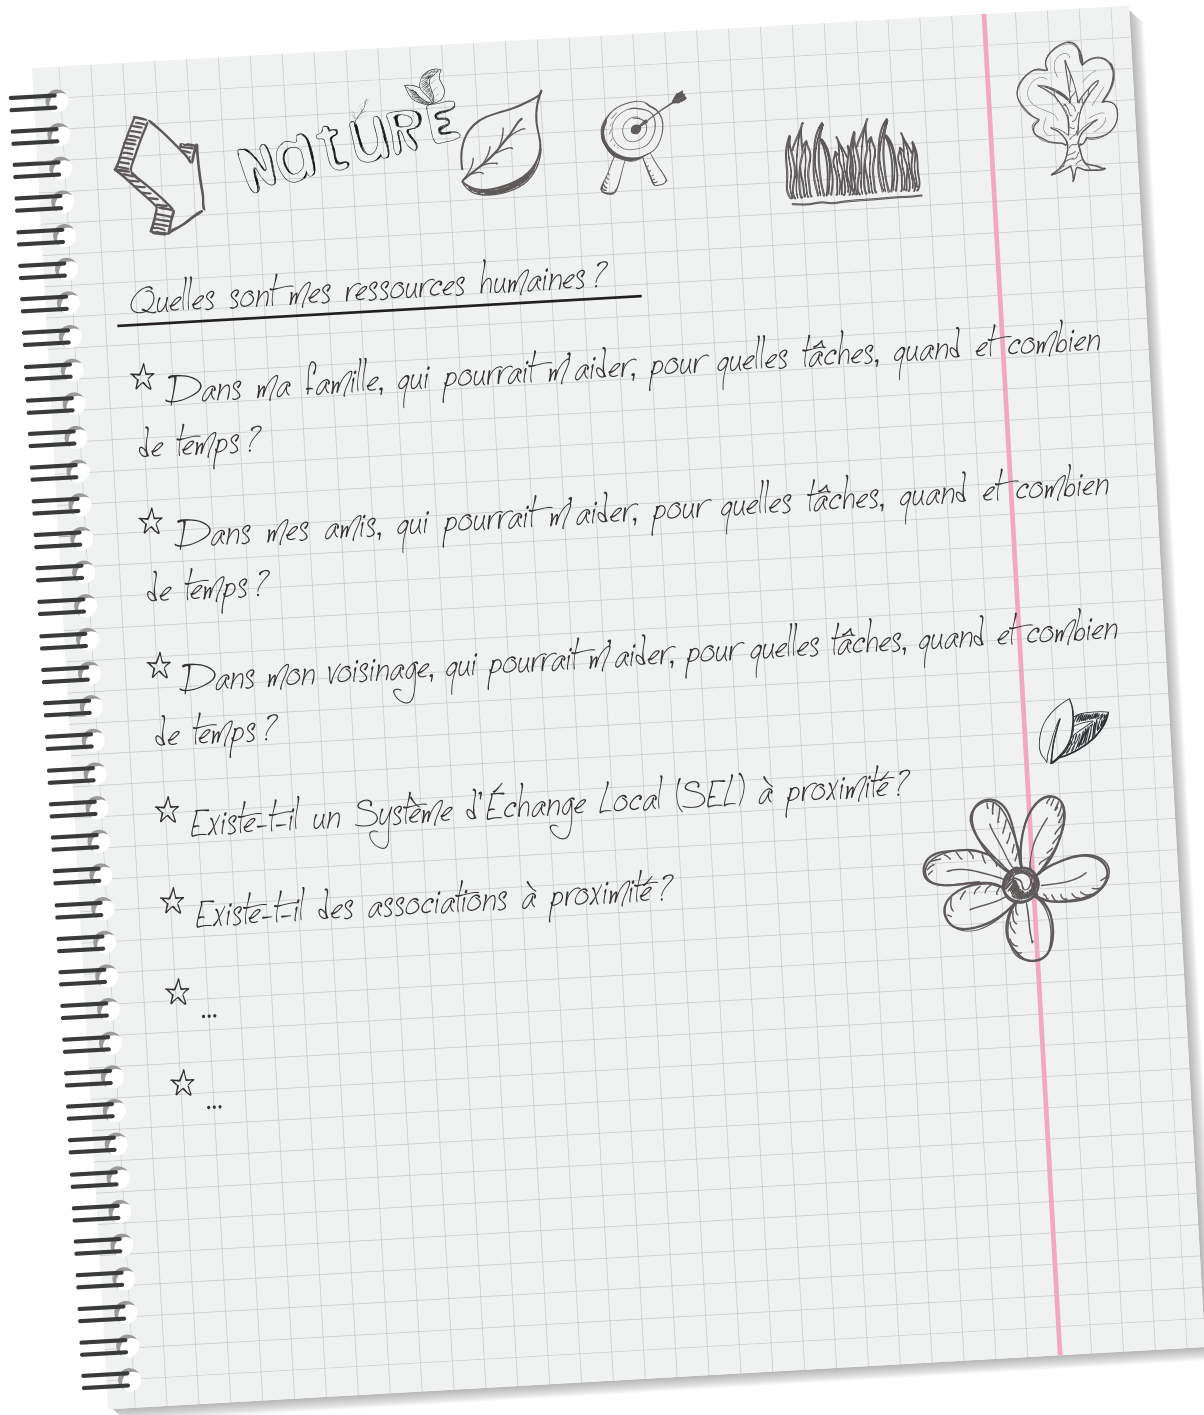 NatURE
Quelles sont mes ressources humaines ?
☆ Dans ma famille, qui pourrait m'aider, pour quelles tâches, quand et combien
de temps ?
☆ Dans mes amis, qui pourrait m'aider, pour quelles tâches, quand et combien
de temps ?
☆ Dans mon voisinage, qui pourrait m'aider, pour quelles tâches, quand et combien
de temps ?
☆ Existe-t-il un Système d'Échange Local (SEL) à proximité ?
☆ Existe-t-il des associations à proximité ?
☆ ...
☆ ...